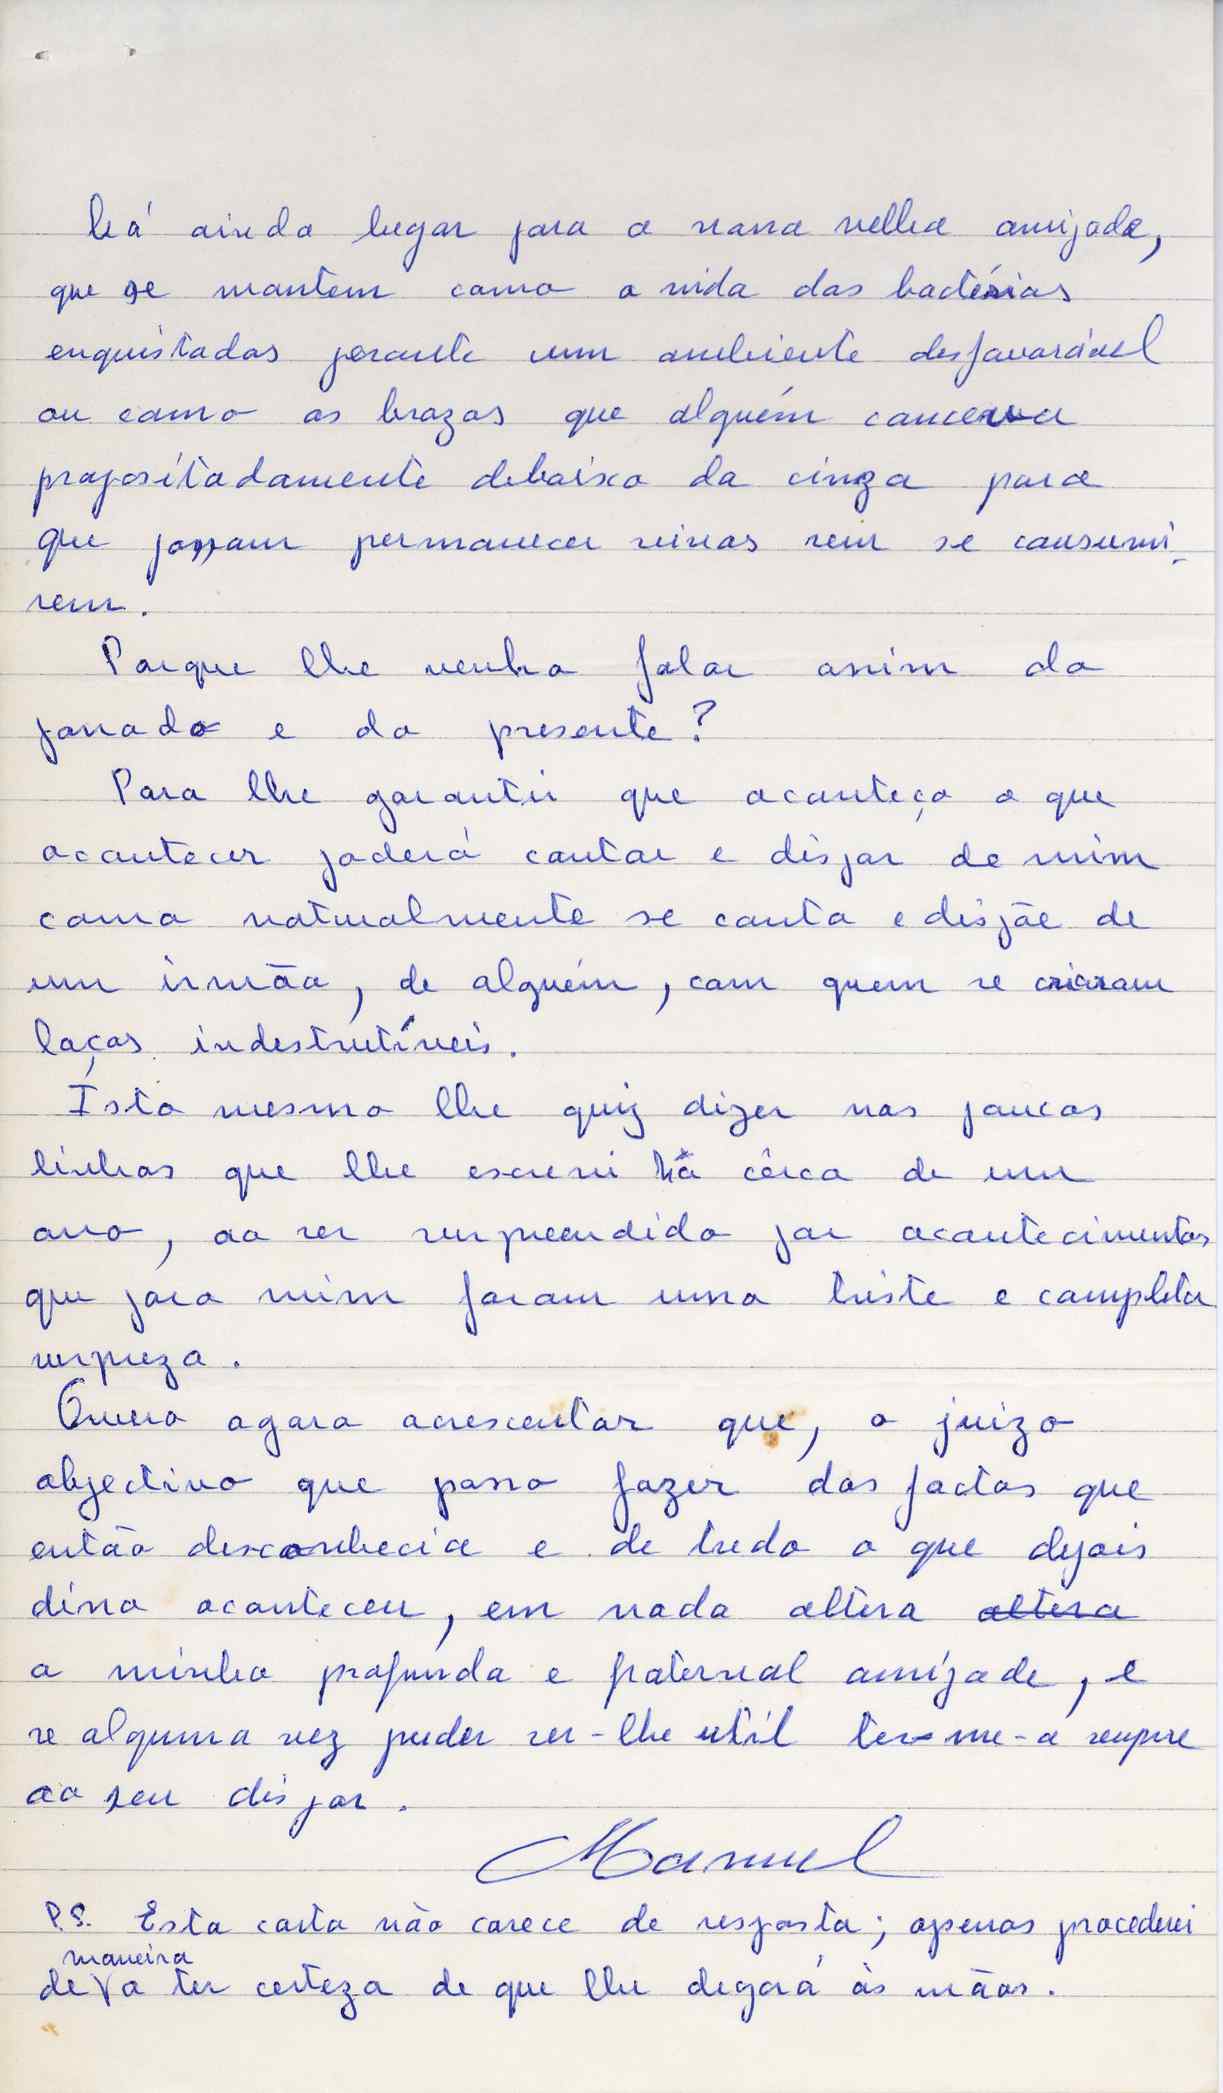 há ainda lugar para a nossa velha amizade,
que se mantem como a vida das bactérias
enquistadas perante um ambiente desfavorável
ou como as brazas que alguém concerva
propositadamente debaixo da cinza para
que possam permanecer vivas sem se consumi-
rem.
Porque lhe venho falar assim do
passado e do presente?
Para lhe garantir que aconteça o que
acontecer poderá contar e dispor de mim
como naturalmente se conta e dispõe de
um irmão, de alguém, com quem se criaram
laços indestrutíveis.
Ísto mesmo lhe quiz dizer nas poucas
linhas que lhe escrevi há cêrca de um
ano, ao ser surpreendido por acontecimentos
que para mim foram uma triste e completa
surpreza.
Quero agora acrescentar que, o juizo
objectivo que posso fazer dos factos que
então desconhecia e de tudo o que depois
disso aconteceu, em nada altera altera
a minha profunda e fraternal amizade, e
se alguma vez puder ser-lhe util ter-me-a sempre
ao seu dispor.
Manuel
P.S. Esta carta não carece de resposta; apenas procederei
maneira
de a ter certeza de que lhe chegará às mãos.